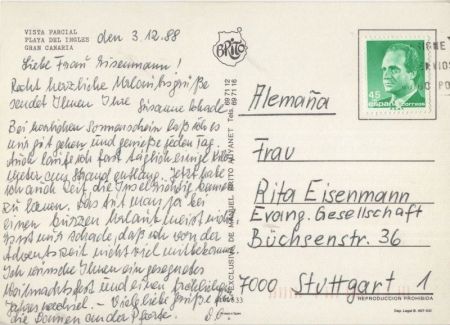 VISTA PARCIAL
PLAYA DEL INGLES
GRAN CANARIA
den 3.12.88
Liebe Frau Eisenmann!
Recht herzliche Urlaubsgrüße
sendet Ihnen Ihre Susanne
Bei herrlichem Sonnenschein laß ich es
mir gut gehen und genieße jeden Tag.
Auch laufe ich fast täglich einige Kilo-
meter am Strand entlang. Jetzt habe
ich auch Zeit die Insel richtig kennen
zu lernen. Das ist man ja bei
einem kurzen Urlaub meist nicht.
ist nur schade, daß ich von der
Adventszeit nicht viel mitbekomme.
Ich wünsche Ihnen ein gesegnetes
Weihnachtsfest und einen fröhlichen
Jahreswechsel. - Viele liebe Grüße an
die Damen an der Pforte.
BRITO
EXCLUSIVE DE MANUEL BRITO AUYANET
Tels. 69 71 12
69 71 16
45
españa
correos
Alemaña
Frau
Rita Eisenmann
Evang. Gesellschaft
Büchsenstr. 36
7000 Stuttgart 1
REPRODUCCION PROHIBIDA